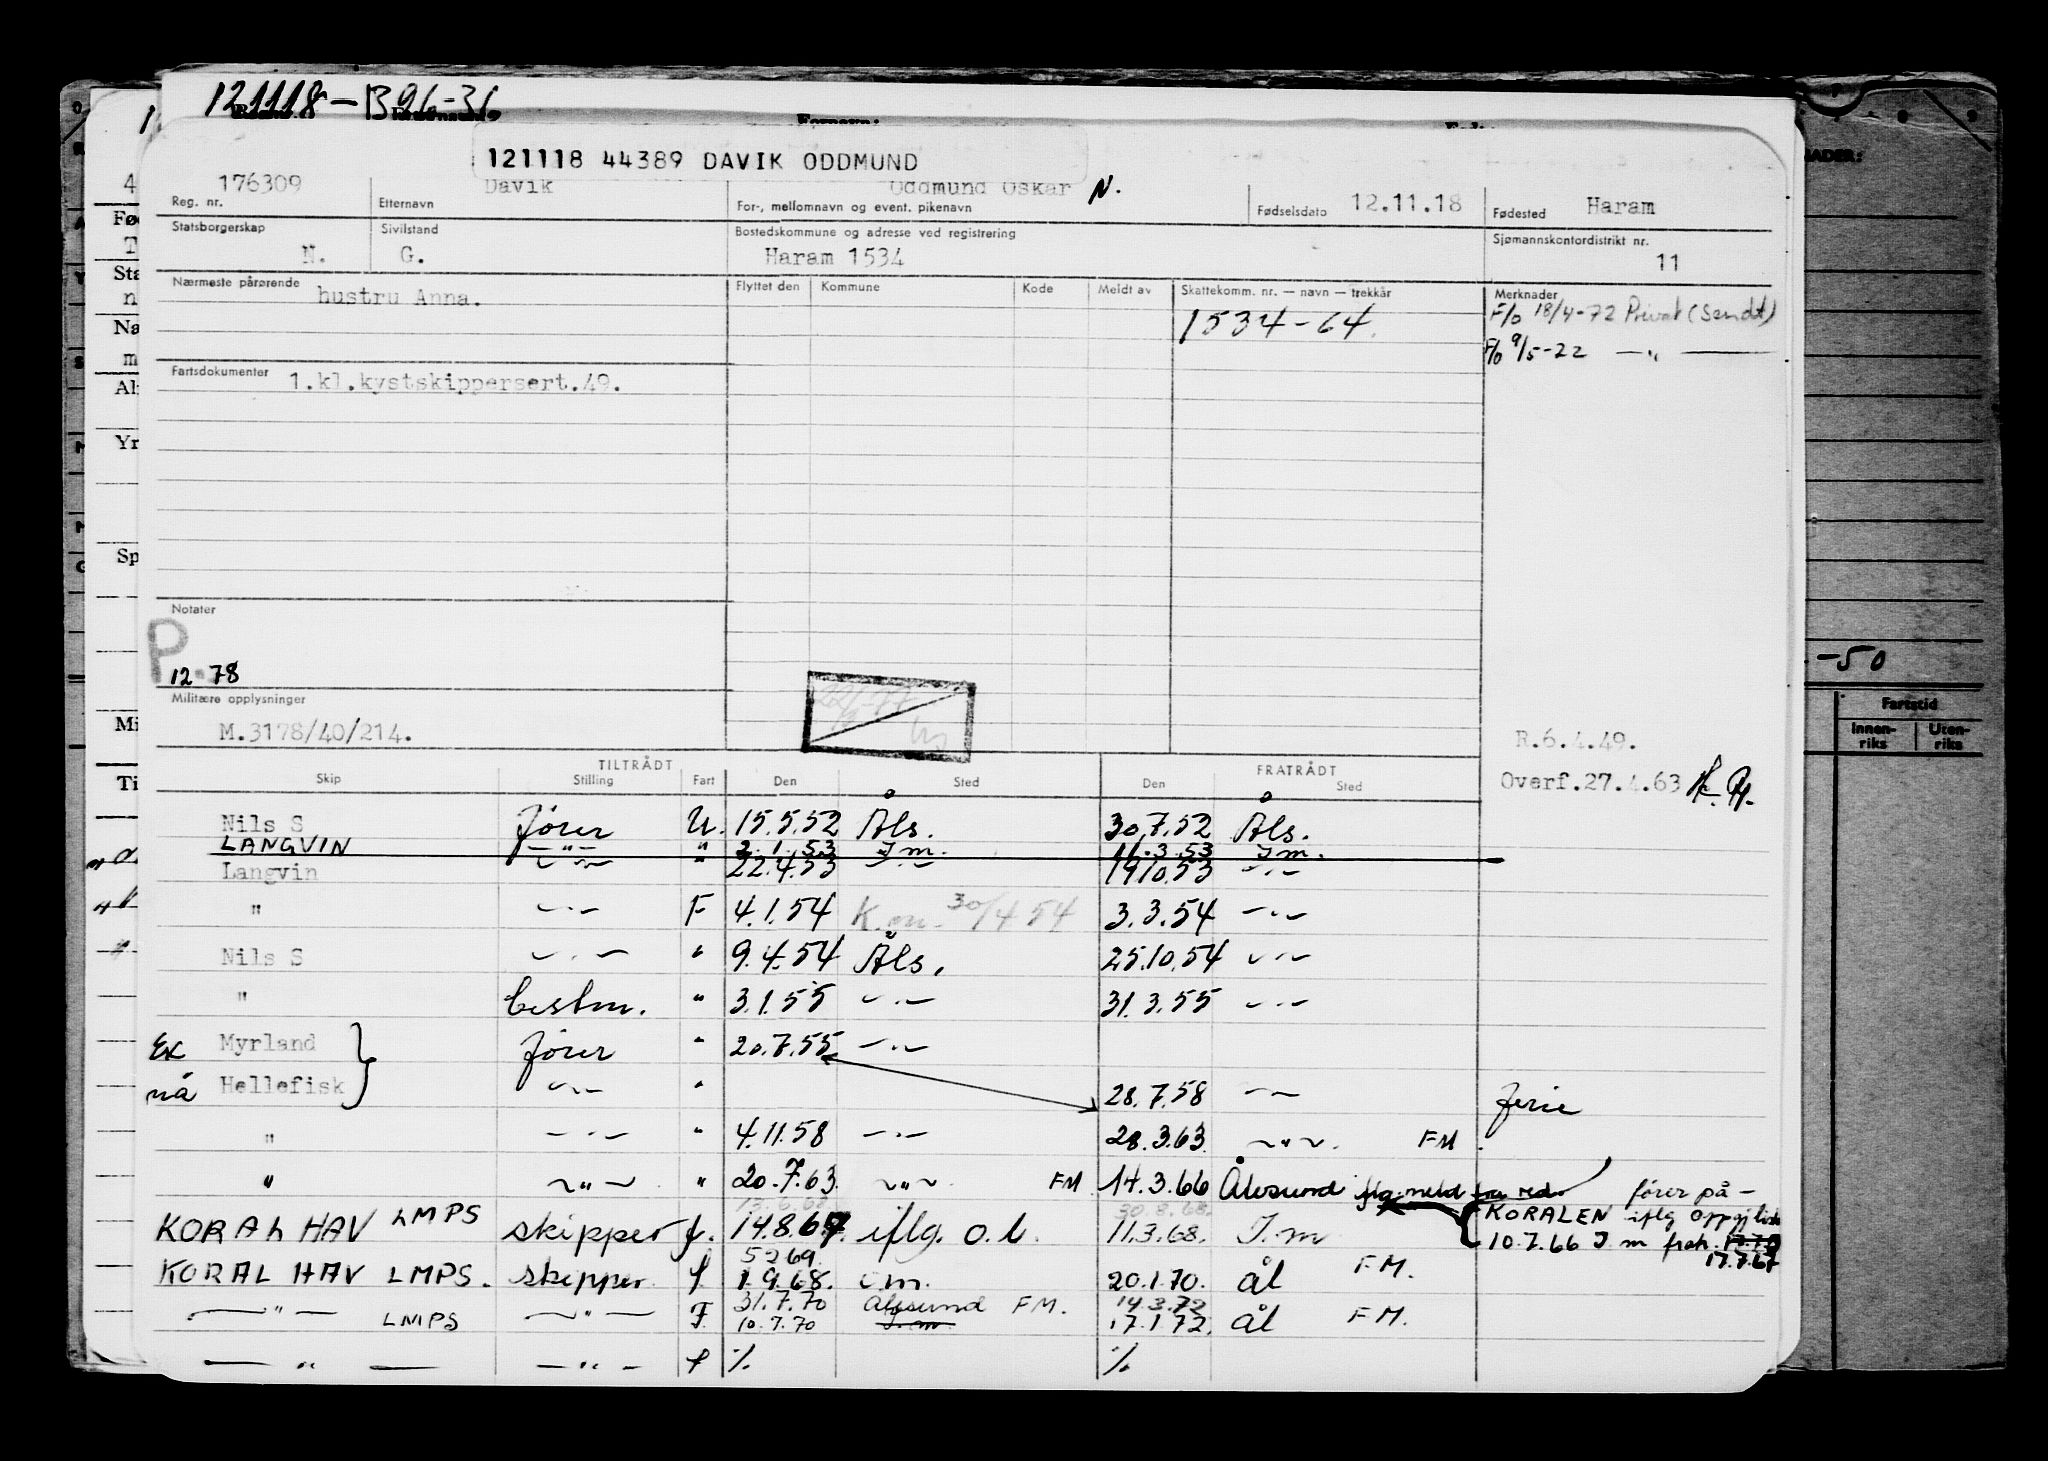 121118-B96-36
121118 44389 DAVIK ODDMUND
176309 Davik Oddmund Oskar N. 12.11.18 Haram
Reg. nr. Etternavn For-, mellomnavn og event. pikenavn Fødselsdato Fødested
Statsborgerskap Sivilstand Bostedskommune og adresse ved registrering Sjømannskontordistrikt nr.
N. G. Haram 1534 11
Nærmeste pårørende Flyttet den Kommune Kode Meldt av Skattekomm. nr. — navn — trekkår Merknader
hustru Anna. 1534-64. F/o 18/4-72 Privat (Sendt)
F/o 9/5-22 — " —
Fartsdokumenter 1.kl.kystskippersert.49.
Notater
P
12-78
Militære opplysninger
M.3178/40/214.
R.6.4.49.
Overf.27.4.63
TILTRÅDT FRATRÅDT
Skip Stilling Fart Den Sted Den Sted
Nils S fører U. 15.5.52 Åls. 30.7.52 Åls.
LANGVIN —"— " 2.1.53 I m. 11.3.53 I m.
Langvin —"— " 22.4.53 —"— 19.10.53 —"—
" —"— F 4.1.54 K.m. 30/4 54 3.3.54 —"—
Nils S —"— " 9.4.54 Åls. 25.10.54 —"—
" bestm. " 3.1.55 —"— 31.3.55 —"—
Ex Myrland fører " 20.7.55 —"—
nå Hellefisk —"— " 28.7.58 —"— ferie
" —"— " 4.11.58 —"— 28.3.63 —"— FM.
" —"— " 20.7.63 —"— FM 14.3.66 Ålesund iflg. meld fra red. fører på -
KORALEN iflg oppgj liste
10.7.66 I m fratr. 17.7.67
KORAL HAV LMPS skipper f. 14.8.67 iflg. o.l. 11.3.68. I.m
5 2 69
KORAL HAV LMPS. skipper f 1.9.68. i m. 20.1.70. ål FM.
31.7.70 Ålesund FM. 14.3.72
—"— LMPS —"— F. 10.7.70 I. m. 17.1 72. ål FM.
—"— —"— f % %
-50
Fartstid
Innen-riks Uten-riks